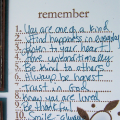 remember
1. You are one of a kind.
2. Find happiness in everyday
3. Listen to your heart.
4. Love unconditionally.
5. Be kind to others.
6. Always be honest.
7. Trust in God.
8. Know you are loved.
9. Be thankful.
10. Smile always